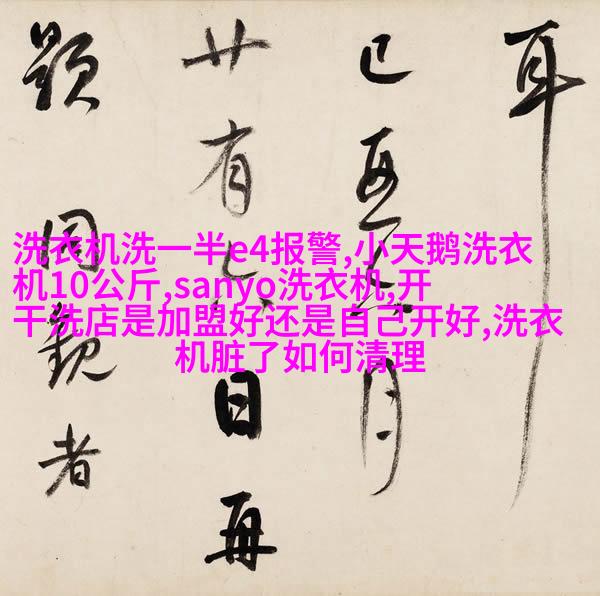 洗衣机洗一半e4报警,小天鹅洗衣
机10公斤,sanyo洗衣机,开
干洗店是加盟好还是自己开好,洗衣
机脏了如何清理
耳
已酉五月
廿有六日再
題同觀者